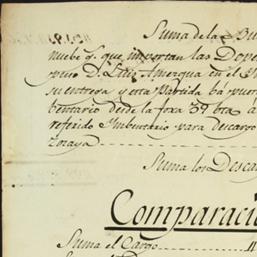 Suma de la Bu
nuebe q.^s que importan las Dove
puso D. Luis Amerqua en el Y
su entrega y esta Partida bá puer
bentario desde la foxa 39 bta á
referido Ymbentario para descargo
zoraya
Suma los Desca
Comparaci
Suma el Cargo